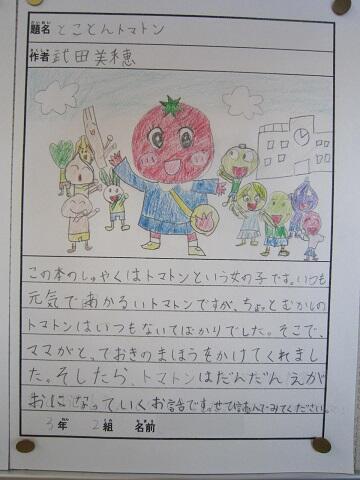 題名 とことんトマトン
作者 武田美穂
この本のしゅやくはトマトンという女の子です。いつも
元気であかるいトマトンですが、ちょっとむかしの
トマトンはいつもないてばかりでした。そこで、
ママがとっておきのまほうをかけてくれまし
た。そしたら、トマトンはだんだんえが
おになっていくお話です。ぜひ読んでみてください。
3年 2組 名前